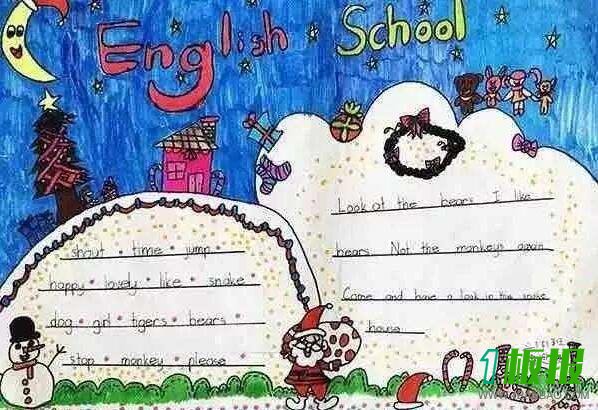 English School
shout · time · jump ·
happy · lovely · like · snake
dog · girl · tigers · bears ·
stop · monkey · please
Look at the bears I like
bears Not the monkeys again
Come and have a look in the
house
板报